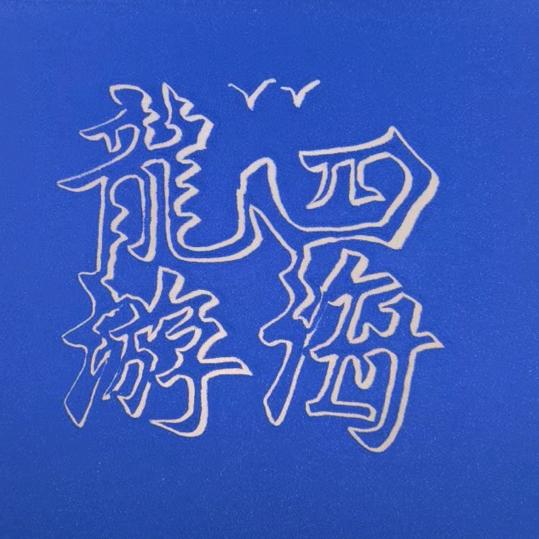 龍游
四海